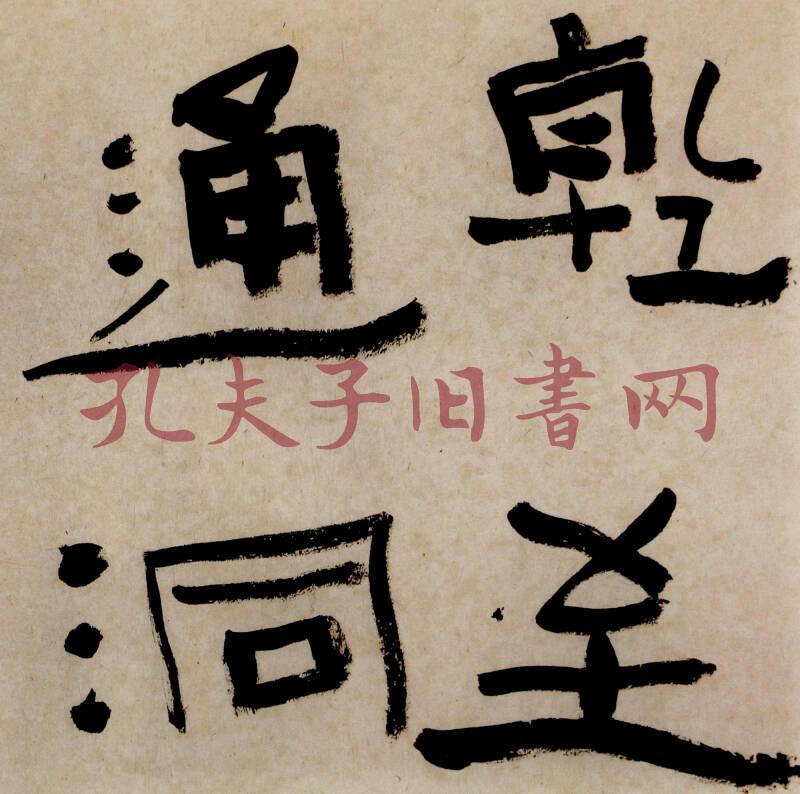 乾至
通洞
孔夫子旧书网